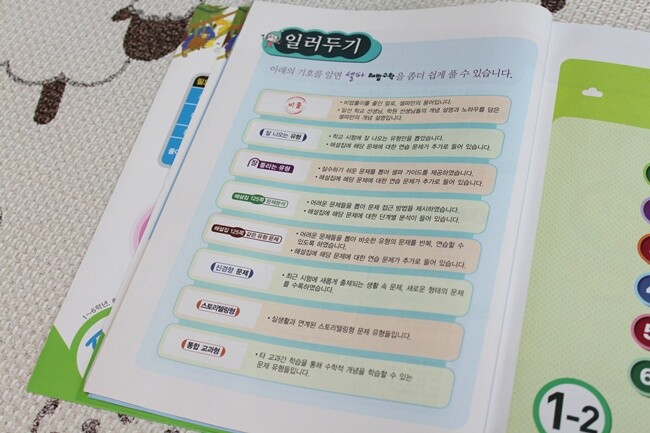 일러두기
아래의 기호를 알면 셀파 해법수학을 좀더 쉽게 풀 수 있습니다.
비풀
• 비법풀이를 줄인 말로, 셀파만의 용어입니다.
• 일선 학교 선생님, 학원 선생님들의 개념 설명과 노하우를 담은
셀파만의 개념 설명입니다.
잘 나오는 유형
• 학교 시험에 잘 나오는 유형만을 뽑았습니다.
• 해설집에 해당 문제에 대한 연습 문제가 추가로 들어 있습니다.
잘 틀리는 유형
• 실수하기 쉬운 문제를 뽑아 셀파 가이드를 제공하였습니다.
• 해설집에 해당 문제에 대한 연습 문제가 추가로 들어 있습니다.
해설집 125쪽 문제분석
• 어려운 문제들을 뽑아 문제 접근 방법을 제시하였습니다.
• 해설집에 해당 문제에 대한 단계별 분석이 들어 있습니다.
해설집 125쪽 다른 유형 문제
• 어려운 문제들을 뽑아 비슷한 유형의 문제를 반복, 연습할 수
있도록 하였습니다.
• 해설집에 해당 문제에 대한 연습 문제가 추가로 들어 있습니다.
신경향 문제
• 최근 시험에 새롭게 출제되는 생활 속 문제, 새로운 형태의 문제
를 수록하였습니다.
스토리텔링형
• 실생활과 연계된 스토리텔링형 문제 유형들입니다.
통합 교과형
• 타 교과간 학습을 통해 수학적 개념을 학습할 수 있는
문제 유형들입니다.
1~6학년,
5
6
1-2